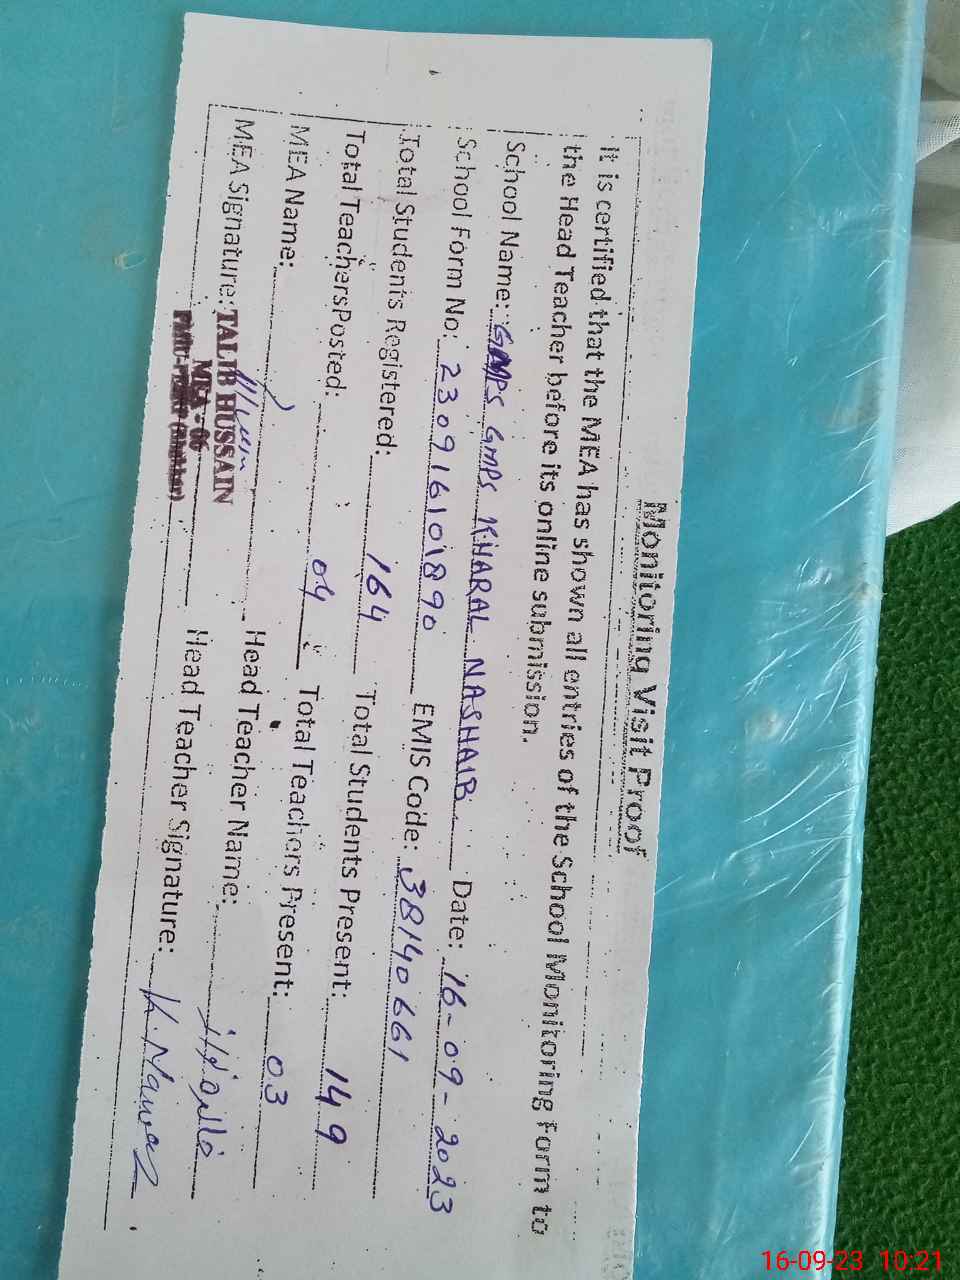 Monitoring Visit Proof
It is certified that the MEA has shown all entries of the School Monitoring Form to
the Head Teacher before its online submission.
School Name: GMPS GMPS KHARAL NASHAIB Date: 16-09-2023
School Form No: 230916101890 EMIS Code: 38140661
Total Students Registered: 164 Total Students Present: 149
Total Teachers Posted: 04 Total Teachers Present: 03
MEA Name: Head Teacher Name:
MEA Signature: Head Teacher Signature: K. Nawaz
TALIB HUSSAIN
MEA - 06
16-09-23 10:21